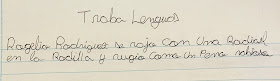 Traba Lenguas
Rogelio Rodriguez se raja con una Radial
en la Rodilla y rugia Como un Perro rabioso